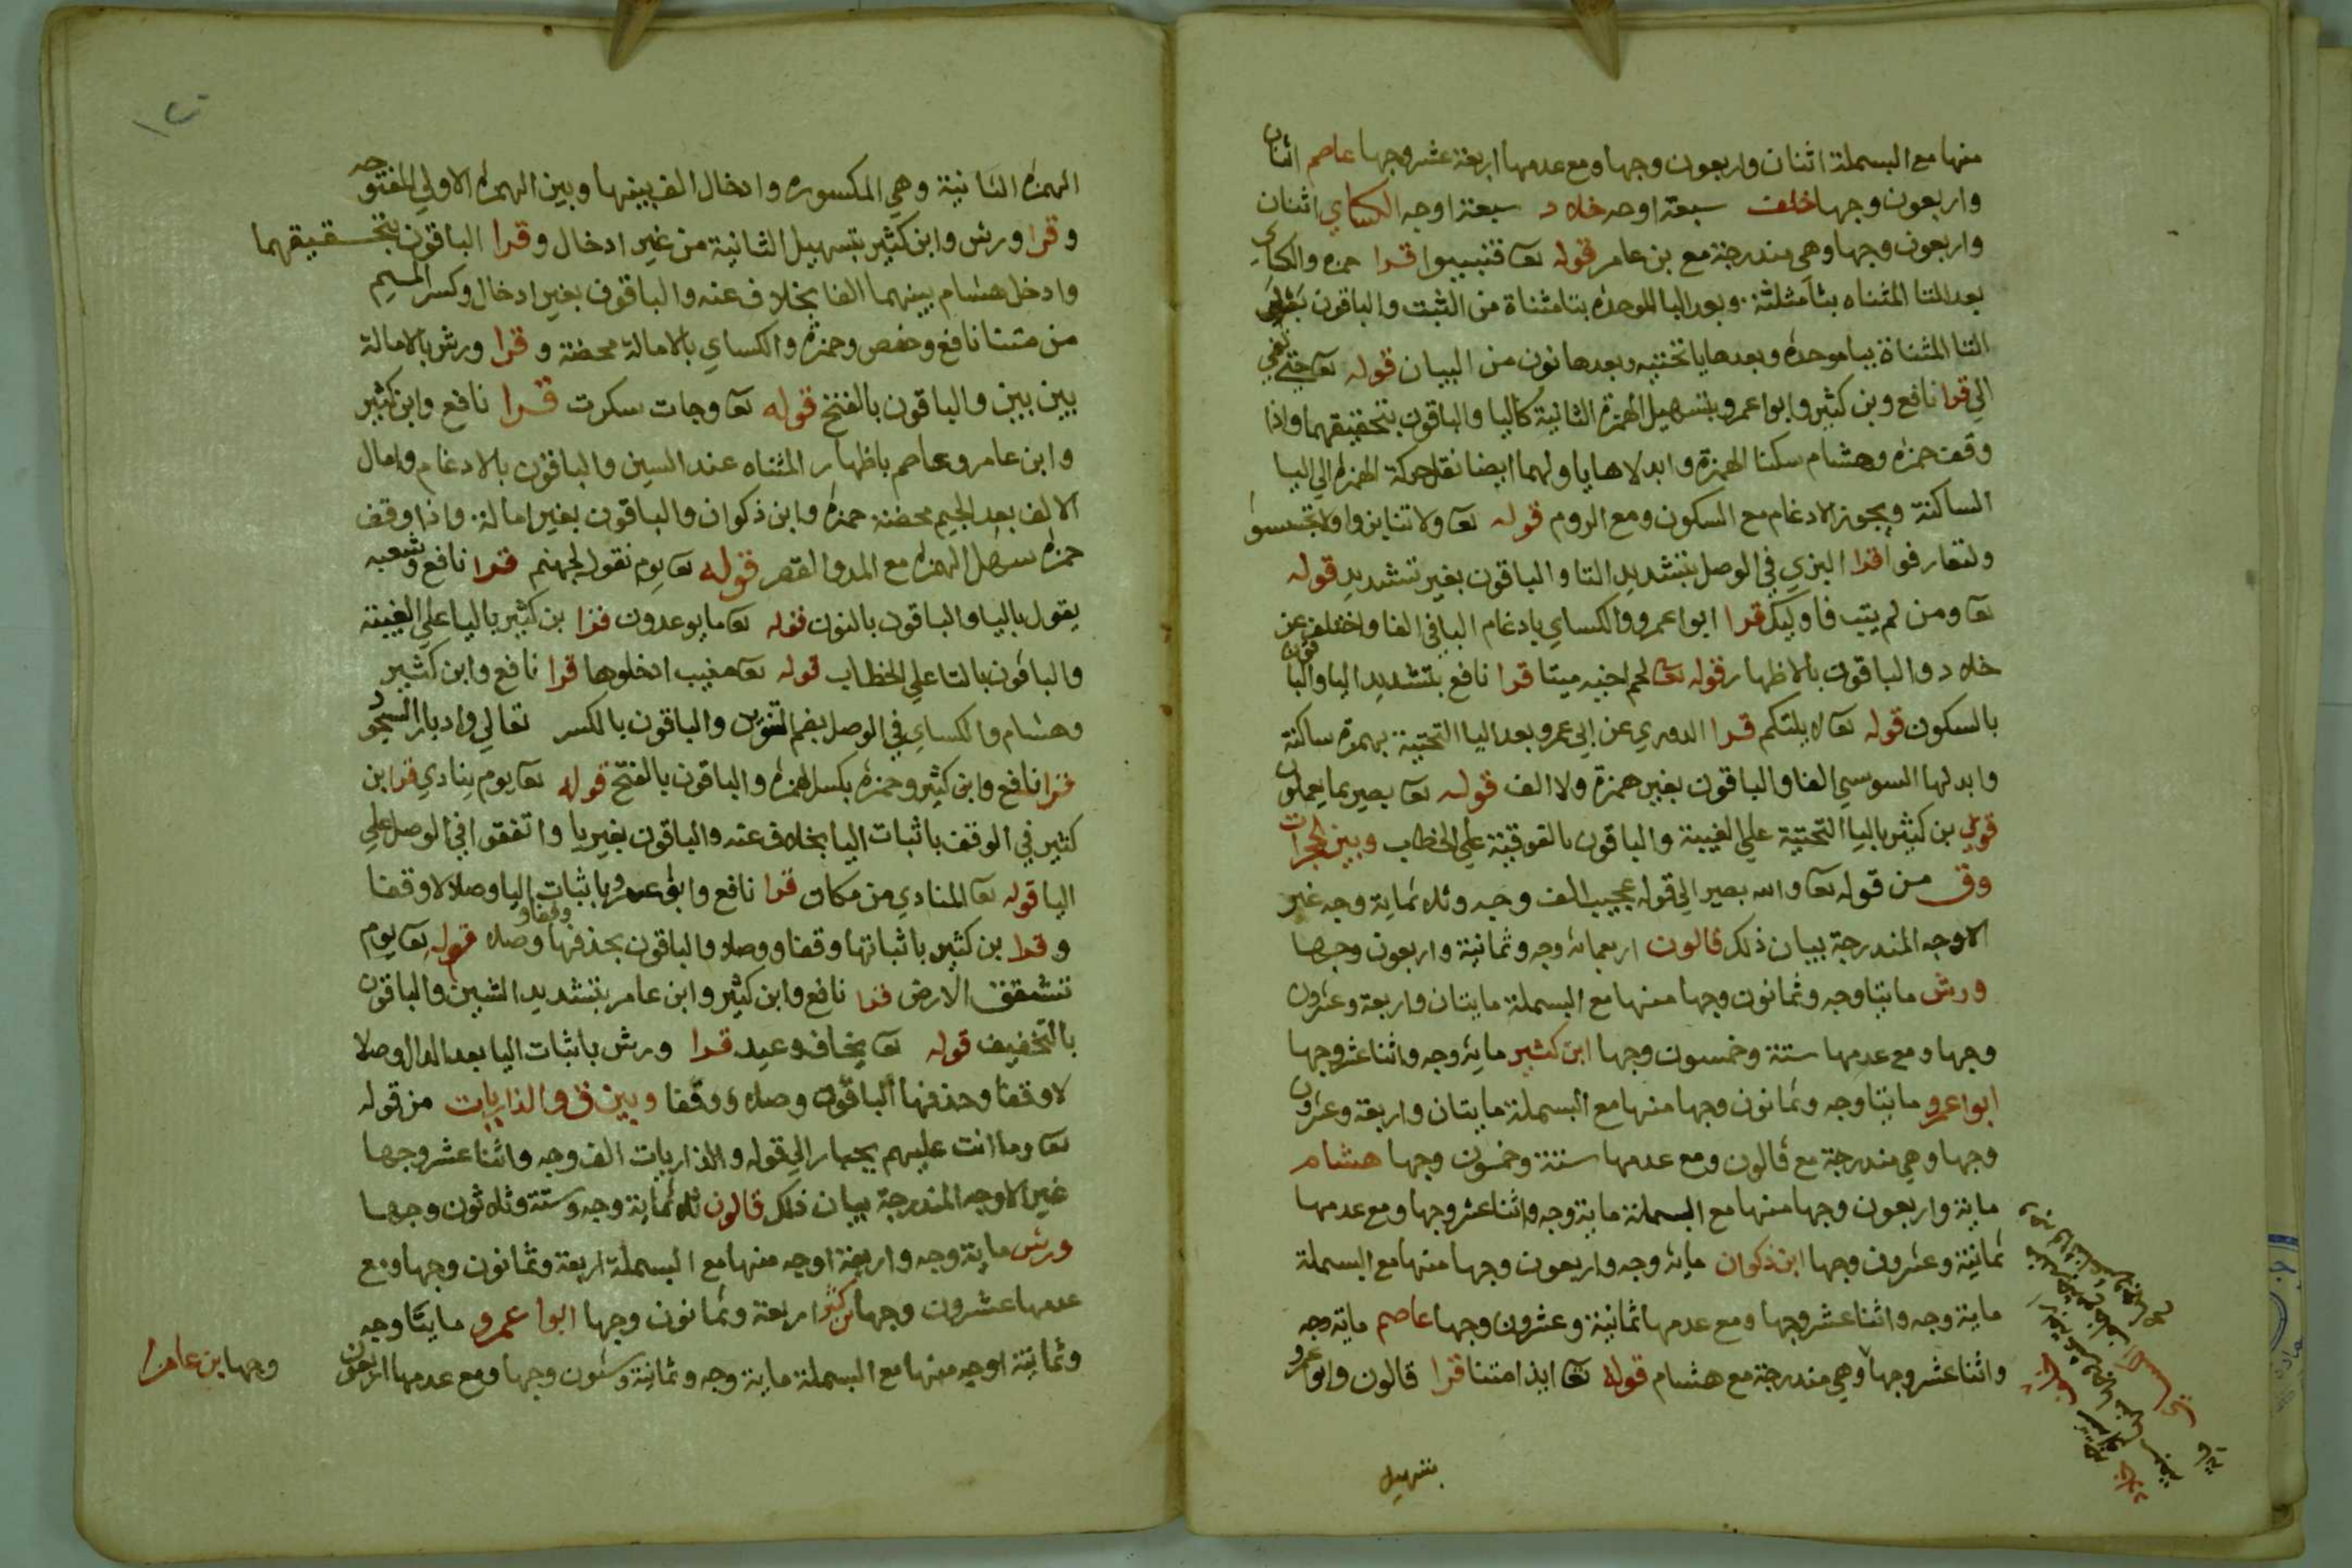 منها مع البسملة اثنان واربعون وجها ومع عدمها اربعة عشر وجها عاصم اثنان
واربعون وجها خلف سبعة اوجه خلاد سبعة اوجه الكساي اثنان
واربعون وجها وهي مندرجة مع بن عامر قوله تعا فتبينوا قرا حمزه والكساي
بعد التا المثناه بثا مثلثة وبعد البا الموحده بتا مثناة من الثبت والباقون بعد
التا المثناة ببا موحدة وبعدها يا تحتيه وبعدها نون من البيان قوله تعا حتي تفي
الي قرا نافع وبن كثير وابوا عمرو بتسهيل الهمزة الثانية كاليا والباقون بتحقيقهما واذا
وقف حمزه وهشام سكنا الهمزة وابدلاها يا ولهما ايضا نقل حركة الهمزه الي اليا
الساكنة ويجوز الادغام مع السكون ومع الروم قوله تعا ولا تنابزوا ولا تجسسوا
ولتعارفوا قرا البزي في الوصل بتشديد التا والباقون بغير تشديد قوله
تعا ومن لم يتب فاوليك قرا ابوا عمرو والكساي بادغام البا في الفا واختلف عن
خلاد والباقون بالاظهار قوله تعا لحم اخيه ميتا قرا نافع بتشديد اليا والباقون
بالسكون قوله تعا لا يلتكم قرا الدوري عن ابي عمرو بعد اليا التحتية بهمزة ساكنة
وابدلها السوسي الفا والباقون بغير همزة ولا الف قوله تعا بصير بما يعملون
قرا بن كثير باليا التحتية علي الغيبة والباقون بالفوقية علي الخطاب وبين الحجرات
وق من قوله تعا والله بصير الي قوله عجيب الف وجه وثلاثماية وجه غير
الاوجه المندرجة بيان ذلك قالون اربعمائة وجه وثمانية واربعون وجها
ورش مايتا وجه وثمانون وجها منها مع البسملة مايتان واربعة وعشرون
وجها ومع عدمها ستة وخمسون وجها ابن كثير ماية وجه واثنا عشر وجها
ابوا عمرو مايتا وجه وثمانون وجها منها مع البسملة مايتان واربعة وعشرون
وجها وهي مندرجة مع قالون ومع عدمها ستة وخمسون وجها هشام
ماية واربعون وجها منها مع البسملة ماية وجه واثنا عشر وجها ومع عدمها
ثمانية وعشرون وجها ابن ذكوان ماية وجه واربعون وجها منها مع البسملة
ماية وجه واثنا عشر وجها ومع عدمها ثمانية وعشرون وجها عاصم ماية وجه
واثنا عشر وجها وهي مندرجة مع هشام قوله تعا ايذا متنا قرا قالون وابوا عمرو
بتسهيل
الهمزه الثانية وهي المكسوره وادخال الف بينها وبين الهمزه الاولي المفتوحه
وقرا ورش وابن كثير بتسهيل الثانية من غير ادخال وقرا الباقون بتحقيقهما
وادخل هشام بينهما الفا بخلاف عنه والباقون بغير ادخال وكسر الميم
من متنا نافع وحفص وحمزة والكساي بالامالة محضة وقرا ورش بالامالة
بين بين والباقون بالفتح قوله تعا وجات سكرت قرا نافع وابن كثير
وابن عامر وعاصم باظهار المثناه عند السين والباقون بالادغام وامال
الالف بعد الجيم محضة حمزة وابن ذكوان والباقون بغير امالة واذا وقف
حمزة سهل الهمزه مع المد والقصر قوله تعا يوم نقول لجهنم قرا نافع وشعبه
يقول باليا والباقون بالنون قوله تعا ما يوعدون قرا بن كثير باليا علي الغيبة
والباقون بالتا علي الخطاب قوله تعا منيب ادخلوها قرا نافع وابن كثير
وهشام والكساي في الوصل بضم التنوين والباقون بالكسر تعالي وادبار السجود
قرا نافع وابن كثير وحمزه بكسر الهمزه والباقون بالفتح قوله تعا يوم ينادي قرا بن
كثير في الوقف باثبات اليا بخلاف عنه والباقون بغير يا واتفقوا في الوصل علي
اليا قوله تعا المنادي من مكان قرا نافع وابو عمرو باثبات اليا وصلا لا وقفا
وقرا بن كثير باثباتها وقفا ووصلا والباقون بحذفها وقفا وصلا قوله تعا يوم
تشقق الارض قرا نافع وابن كثير وابن عامر بتشديد الشين والباقون
بالتخفيف قوله تعا يخاف وعيد قرا ورش باثبات اليا بعد الدال وصلا
لا وقفا وحذفها الباقون وصلا ووقفا وبين ق والذاريات من قوله
تعا وما انت عليهم بجبار الي قوله والذاريات الف وجه واثنا عشر وجها
غير الاوجه المندرجة بيان ذلك قالون ثلاثماية وجه وستة وثلاثون وجها
ورش ماية وجه واربعة اوجه منها مع البسملة اربعة وثمانون وجها ومع
عدمها عشرون وجها بن كثير اربعة وثمانون وجها ابوا عمرو مايتا وجه
وثمانية اوجه منها مع البسملة ماية وجه وثمانية وستون وجها ومع عدمها اربعون
وجها ابن عامر